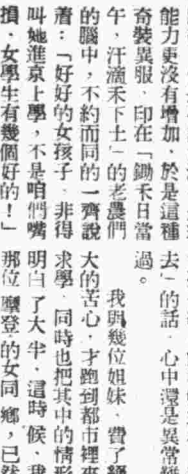 能力更沒有增加，於是這種
奇裝異服，印在「鋤禾日當
午，汗滴禾下土」的老農們
的腦中，不約而同的一齊說
著：「好好的女孩子，非得
叫她進京上學，不是咱們嘴
損，女學生有幾個好的！」
去」的話，心中還是異常
過。
我與幾位姐妹，費了
大的苦心，才跑到都市裡來
求學，同時也把其中的情形
明白了大半，這時候，我
那位摩登的女同鄉，已然